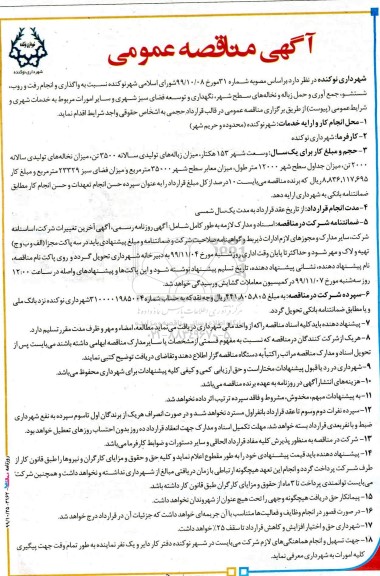 آگهی مناقصه عمومی
شهرداری نوکنده
شهرداری نوکنده در نظر دارد براساس مصوبه شماره ۳۱ مورخ ۹۹/۱۰/۰۸ شورای اسلامی شهر نوکنده نسبت به واگذاری و انجام رفت و روب،
شستشو، جمع آوری و حمل زباله و نخاله‌های سطح شهر، نگهداری و توسعه فضای سبز شهری و سایر امورات مربوط به خدمات شهری و
شرایط عمومی (پیوست) از طریق برگزاری مناقصه عمومی در قالب قرارداد حجمی به اشخاص حقوقی واجد شرایط اقدام نماید.
۱- محل انجام کار و ارایه خدمات: شهر نوکنده (محدوده و حریم شهر)
۲- کارفرما: شهرداری نوکنده
۳- حجم و مبلغ کار برای یک سال: وسعت شهر ۱۵۳ هکتار، میزان زباله‌های تولیدی سالانه ۳۵۰۰ تن، میزان نخاله‌های تولیدی سالانه
۲۰۰۰ تن، میزان جداول سطح شهر ۱۲۰۰۰ متر طول، میزان معابر سطح شهر ۳۵۰۰۰ مترمربع و میزان فضای سبز ۲۳۳۲۹ مترمربع و مبلغ کار
۸,۸۳۶,۱۱۷,۶۹۵ ریال که برنده مناقصه می‌بایست ۱۰ درصد از کل مبلغ قرارداد را به عنوان سپرده حسن انجام تعهدات و حسن انجام کار مطابق
ضمانتنامه بانکی به شهرداری ارایه دهد.
۴- مدت انجام قرارداد: از تاریخ عقد قرارداد به مدت یک سال شمسی
۵- ضمانتنامه شرکت در مناقصه: اسناد و مدارک لازمه به طور کامل شامل: آگهی روزنامه رسمی، آگهی آخرین تغییرات شرکت، اساسنامه
شرکت، سایر مدارک و مجوزهای لازم ادارات ذیربط و گواهینامه صلاحیت شرکت و ضمانتنامه و مبلغ پیشنهادی باید در سه پاکت مجزا (الف و ب و ج)
تهیه و لاک و مهر شود و حداکثر تا پایان وقت اداری روز شنبه مورخ ۹۹/۱۱/۰۴ به دبیرخانه شهرداری تحویل گردد و روی پاکت نام مناقصه،
نام پیشنهاد دهنده، نشانی پیشنهاد دهنده، تاریخ تسلیم پیشنهاد نوشته شود و این پاکت‌ها و پیشنهادهای واصله در ساعت ۱۲:۰۰
روز سه‌شنبه مورخ ۹۹/۱۱/۰۷ در کمیسیون معاملات گشایش و رسیدگی خواهد شد.
۶- سپرده شرکت در مناقصه: به مبلغ ۴۴۱۸۰۵۸۰۵ ریال وجه نقد که به حساب شماره ۳۱۰۰۰۰۱۹۸۵۰۰۴ شهرداری نوکنده نزد بانک ملی
و یا مطابق ضمانتنامه بانکی تحویل گردد.
۷- پیشنهاد دهنده باید کلیه اسناد مناقصه را که از واحد مالی شهرداری دریافت می‌نماید مطالعه، امضاء و مهر و ظرف مدت مقرر تسلیم دارد.
۸- هر یک از شرکت کنندگان در مناقصه که نسبت به مفهوم قسمتی از مشخصات یا سایر مدارک مناقصه ابهامی داشته باشند می‌بایست پس از
تحویل اسناد و مدارک مناقصه مراتب را کتباً به دستگاه مناقصه گزار اطلاع دهند و تقاضای دریافت توضیح کتبی نمایند.
۹- شهرداری در رد یا قبول پیشنهادات مختار است و حق ارزیابی کمی و کیفی کلیه پیشنهادات برای شهرداری محفوظ می‌باشد.
۱۰- هزینه‌های انتشار آگهی در روزنامه به عهده برنده مناقصه می‌باشد.
۱۱- به پیشنهادات مبهم، مخدوش، مشروط و فاقد سپرده ترتیب اثر داده نخواهد شد.
۱۲- سپرده نفرات دوم و سوم تا عقد قرارداد با نفر اول مسترد نخواهد شد و در صورت انصراف هر یک از برندگان اول تا سوم سپرده به نفع شهرداری
ضبط و با نفر بعدی قرارداد بسته خواهد شد. مهلت تکمیل اسناد و مدارک جهت انعقاد قرارداد ده روز بدون احتساب روزهای تعطیل خواهد بود.
۱۳- شرکت در مناقصه به منظور پذیرش کلیه مفاد قرارداد الحاقی و سایر دستورات و ضوابط کارفرما می‌باشد.
۱۴- پیشنهاد دهنده باید قیمت پیشنهادی خود را به طور مقطوع اعلام نماید و کلیه حق و حقوق و مزایای کارگران و نیروها را طبق قانون کار از
طرف شرکت پرداخت گردد و انجام این تعهد هیچگونه ارتباطی با زمان دریافتی مبالغ از شهرداری نداشته و نخواهد داشت و همچنین شرکت
می‌بایست توانمندی پرداخت تا ۳ ماه از حقوق و مزایای کارگران طبق قانون کار داشته باشد.
۱۵- پیمانکار حق دریافت هیچگونه وجهی را تحت هیچ عنوان از شهروندان نخواهد داشت.
۱۶- در صورت قصور در انجام وظایف و فعالیت‌ها متناسب با آن جریمه‌ای خواهد داشت که جزئیات آن در قرارداد درج خواهد شد.
۱۷- شهرداری حق و اختیار افزایش و کاهش قرارداد تا سقف ۲۵٪ خواهد داشت.
۱۸- جهت تسهیل و انجام هماهنگی‌های لازم شرکت می‌بایست در شهر نوکنده دفتر کار دایر و یک نفر نماینده به طور تمام وقت جهت پیگیری
کلیه امورات به شهرداری معرفی نماید.